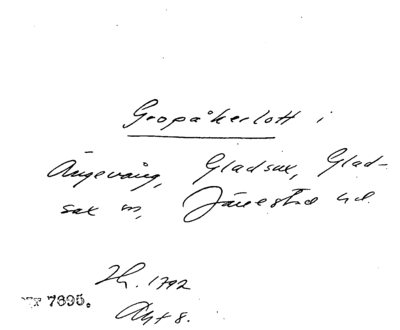 Gropåkerlott i
Ängevång, Gladsax, Glad-
sax sn, Järrestad hd.
Zh. 1792
7895.
Akt 8.